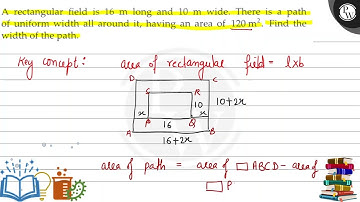 A rectangular field is 16 m long and 10 m wide. There is a path
of uniform width all around it, having an area of 120 m². Find the
width of the path.
Key concept: area of rectangular field = l×b
D C
S R
x 10 x 10+2x
P 16 Q
A B
16+2x
area of path = area of □ ABCD - area of
□ P